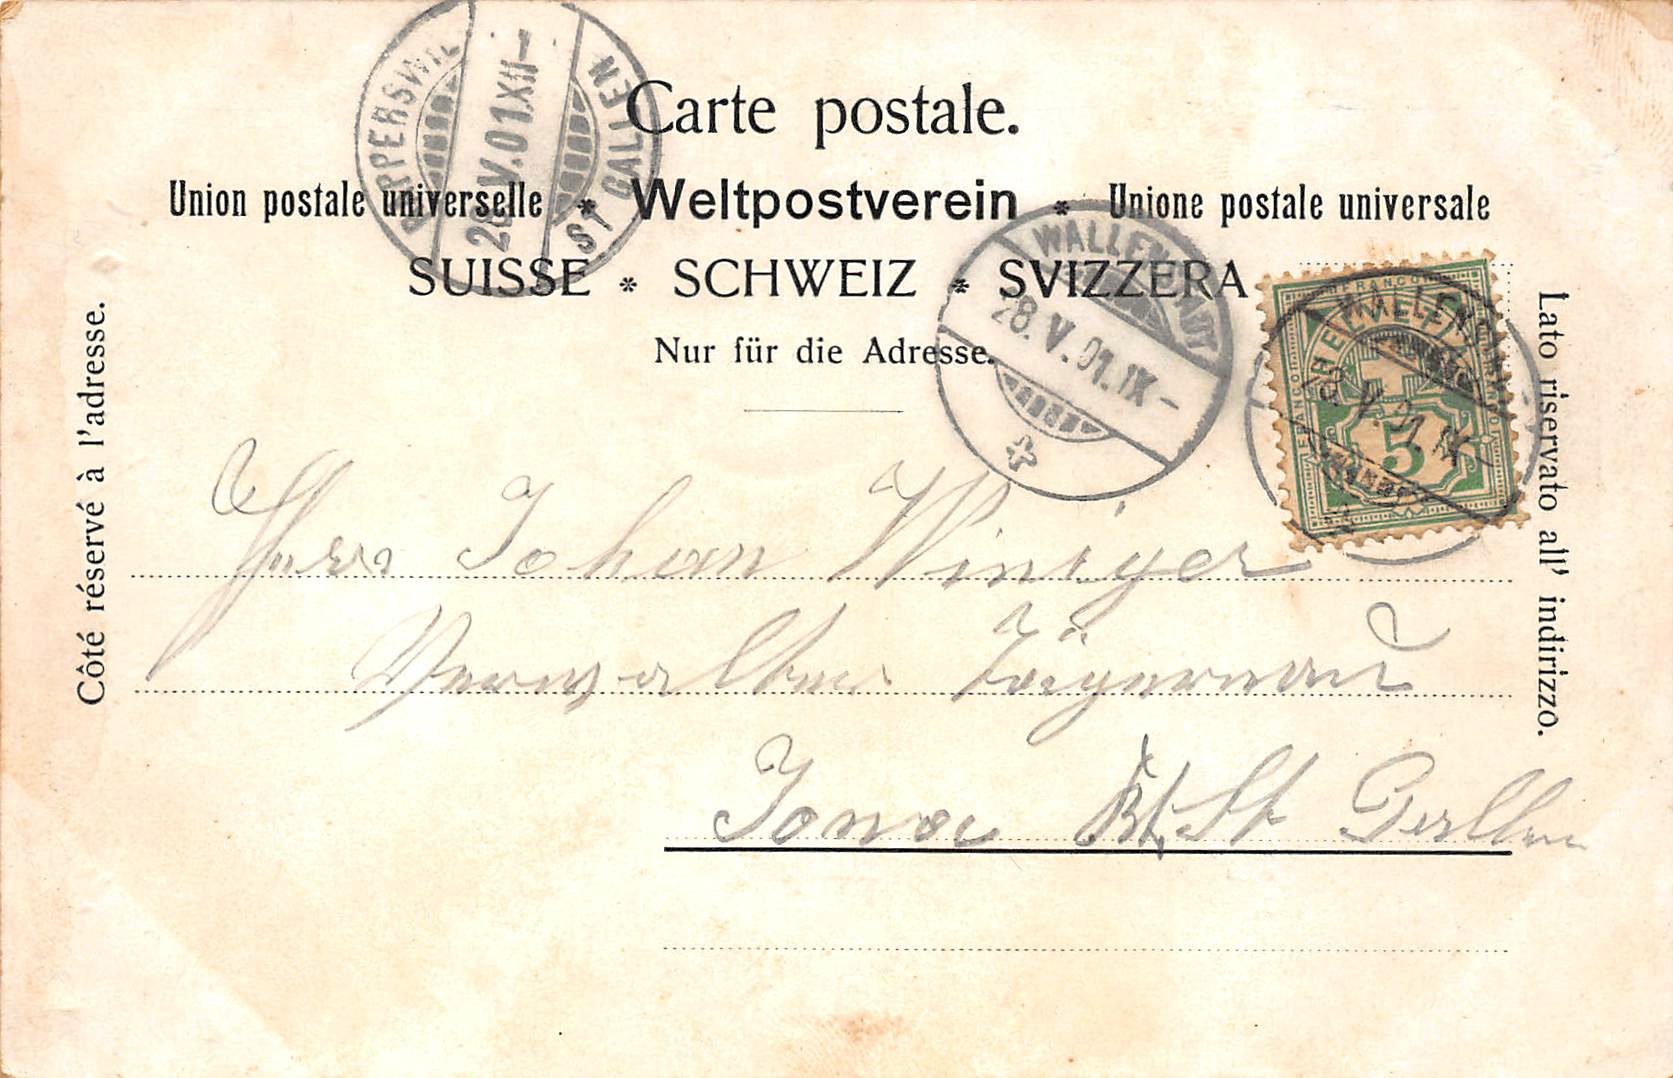 RAPPERSWIL
28.V.01.XII-
ST GALLEN
Carte postale.
Union postale universelle * Weltpostverein * Unione postale universale
SUISSE * SCHWEIZ * SVIZZERA
Nur für die Adresse.
WALLENSTADT
28.V.01.IX-
FRANCO
HELVETIA
5
WALLENSTADT
28.V.01.IX-
Côté réservé à l'adresse.
Lato riservato all' indirizzo.
Herr Johan Winiger
Verwalter
Jona Kt. St Gallen